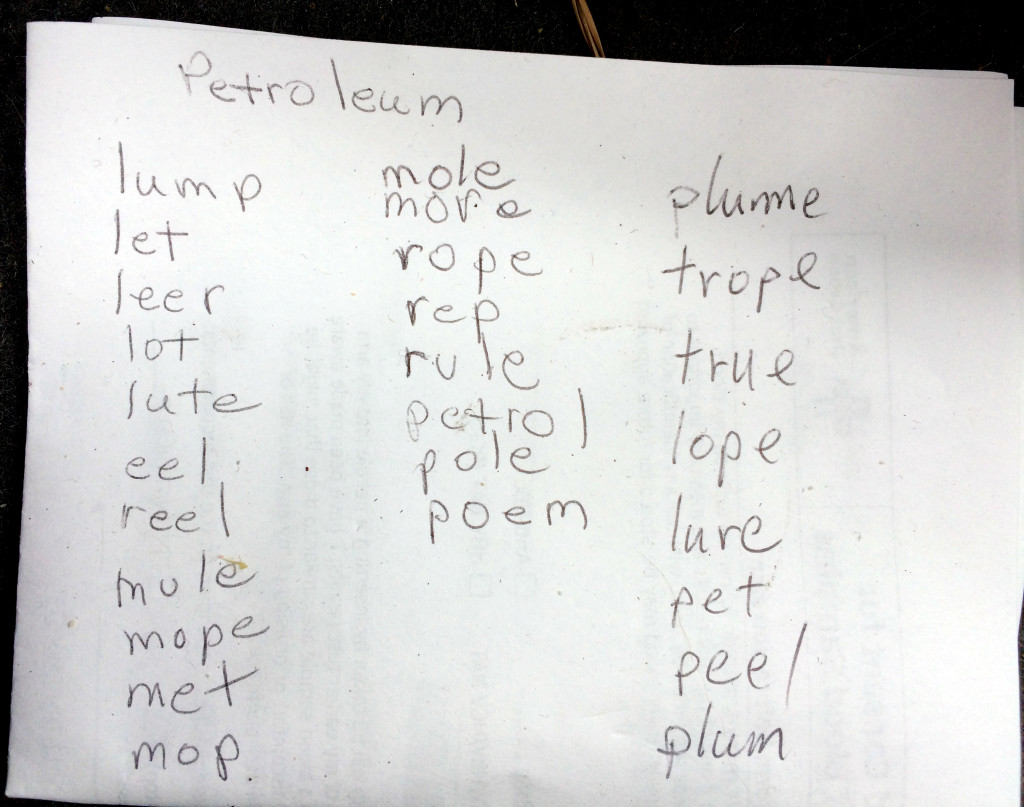 Petroleum
lump
let
leer
lot
lute
eel
reel
mule
mope
met
mop
mole
more
rope
rep
rule
petrol
pole
poem
plume
trope
true
lope
lure
pet
peel
plum